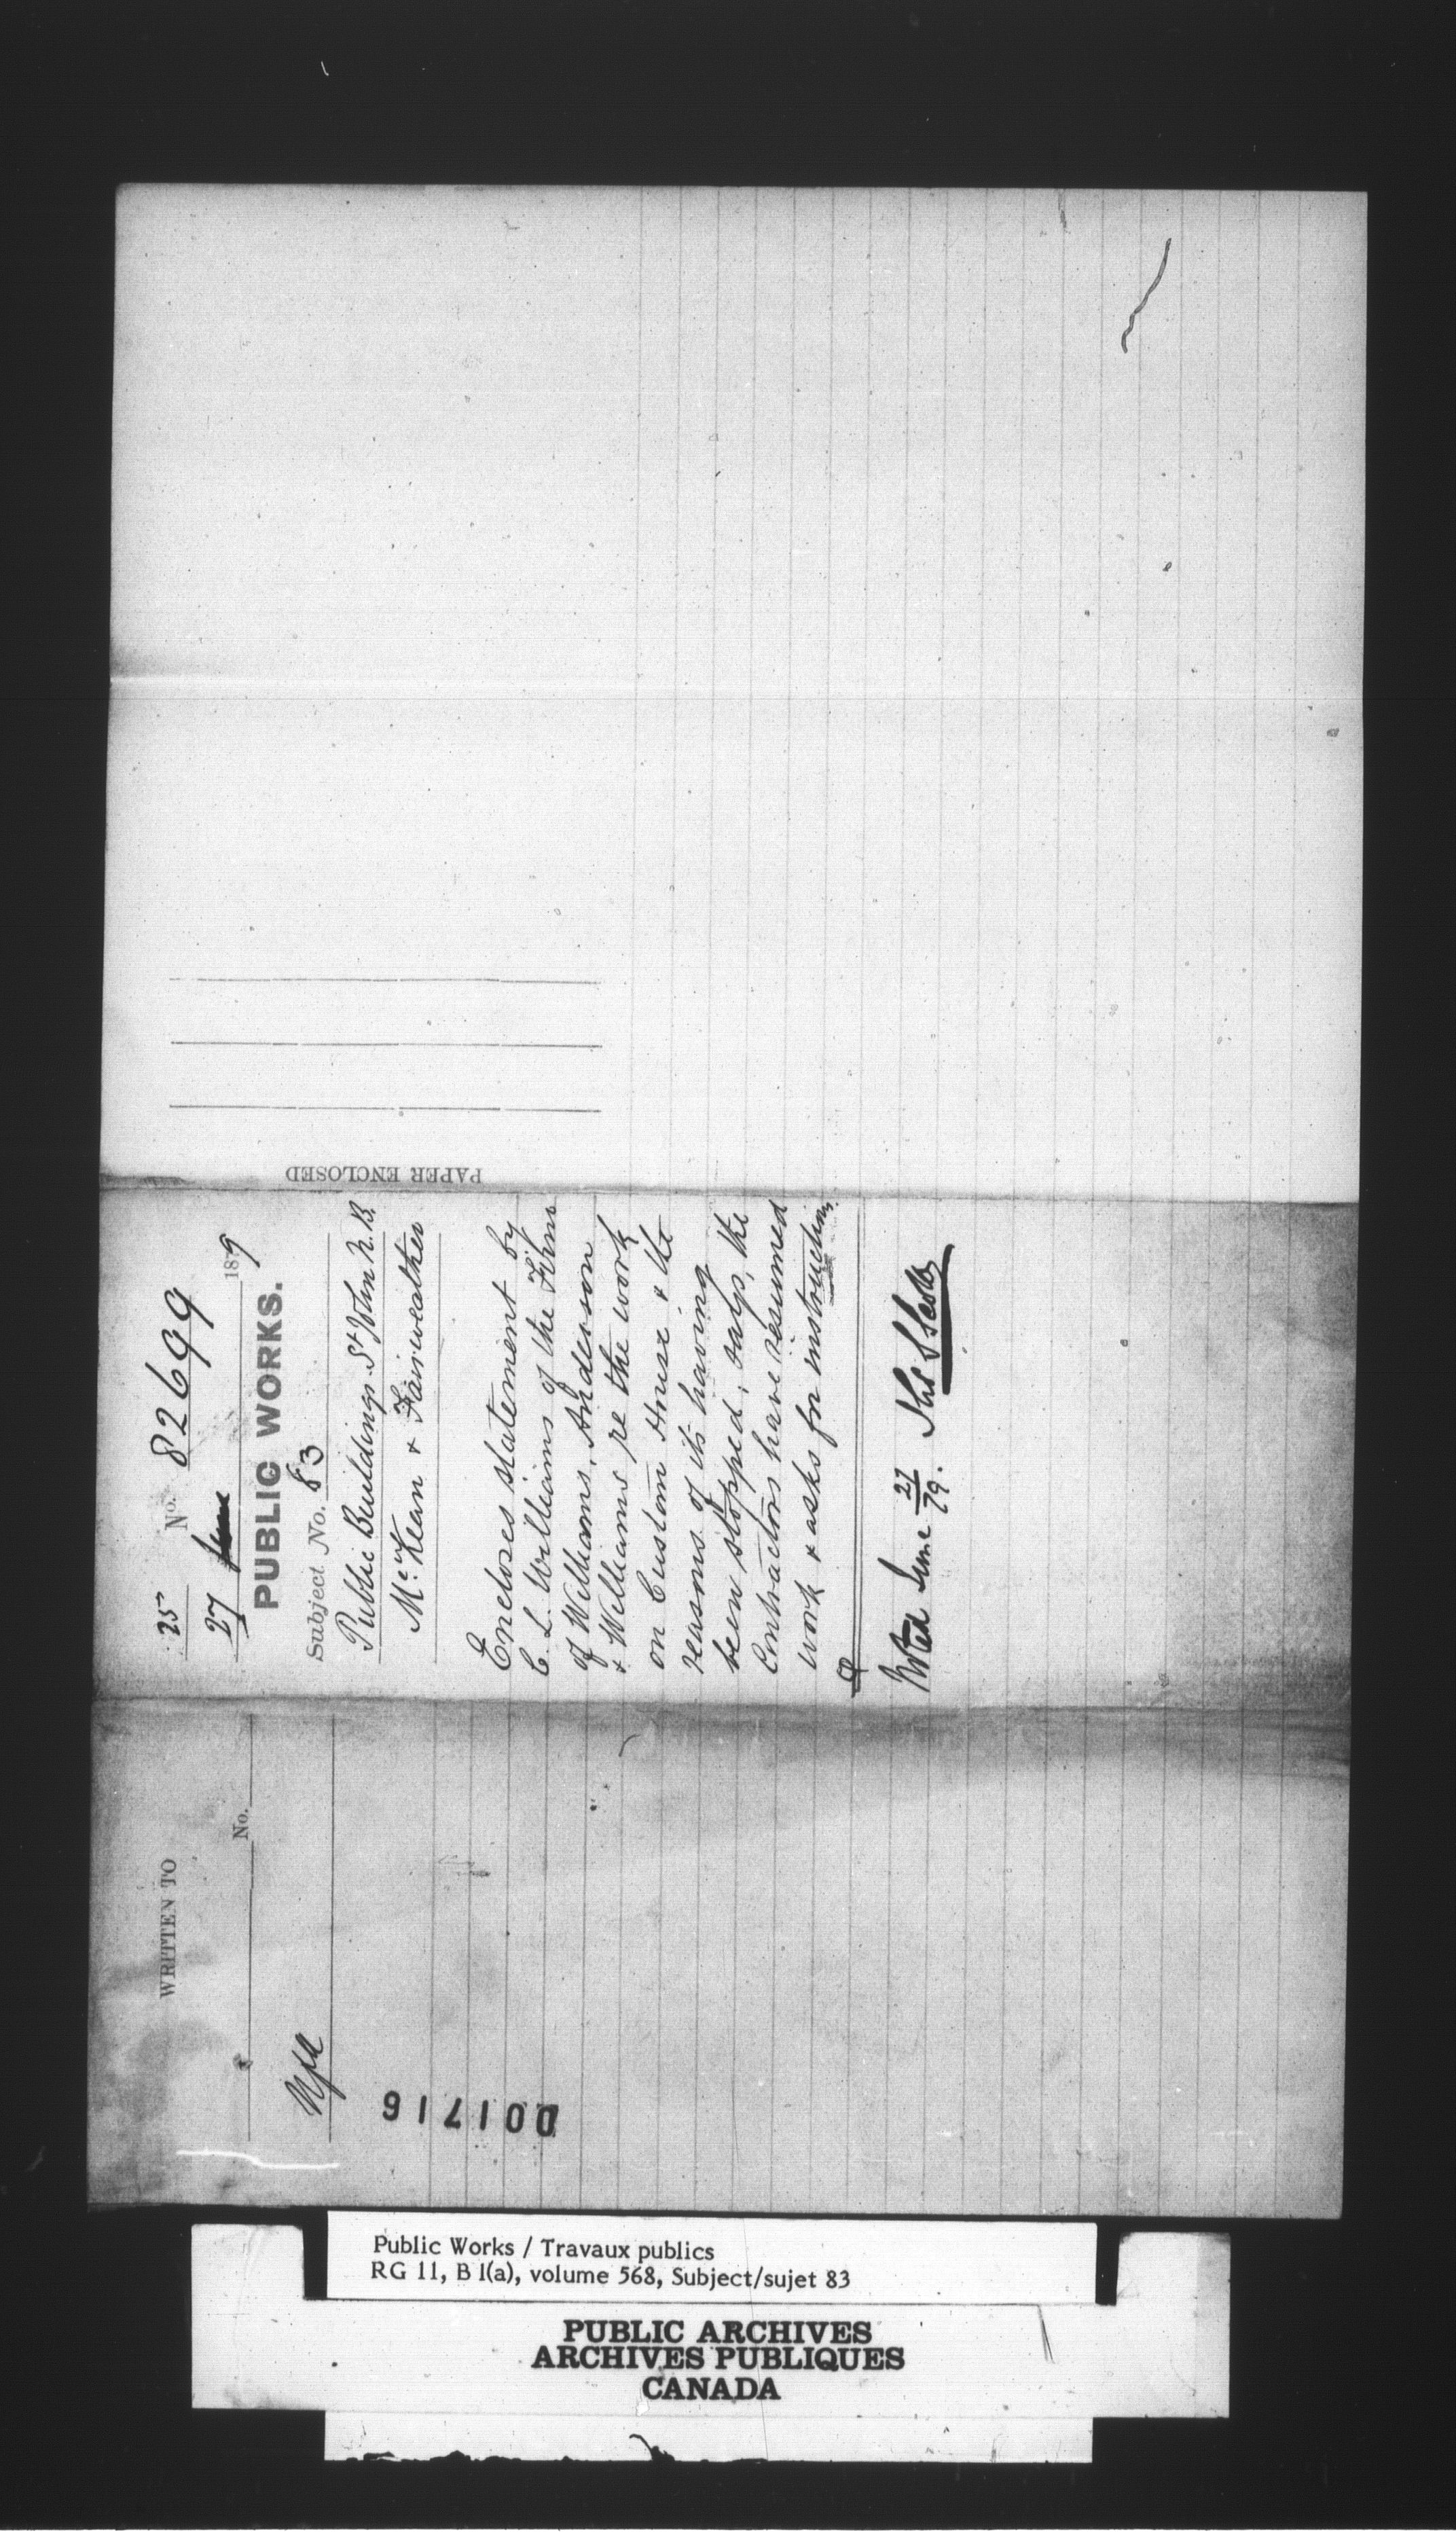 25 No. 82699
27 June 1879
PUBLIC WORKS.
Subject No. 83
Public Buildings St John N.B.
McKean & Fairweather
Encloses statement by
C. L. Williams of the Firm
of Williams, Anderson
& Williams re the work
on Custom House & the
reasons of its having
been stopped, says, the
Contractors have resumed
work & asks for instructions.
Noted June 27/79.
PAPER ENCLOSED
WRITTEN TO
No.
001716
Public Works / Travaux publics
RG 11, B 1(a), volume 568, Subject/sujet 83
PUBLIC ARCHIVES
ARCHIVES PUBLIQUES
CANADA